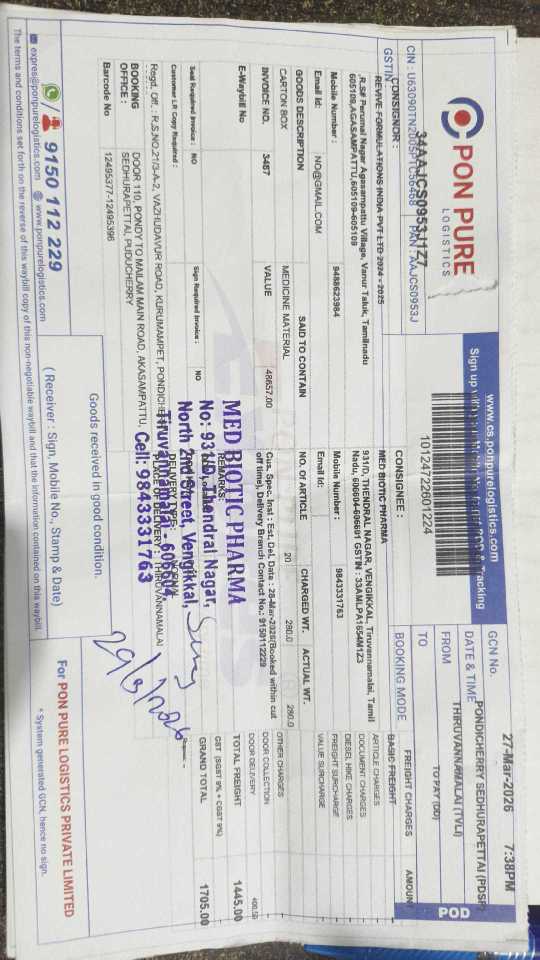 PON PURE
LOGISTICS
www.cs.ponpurelogistics.com
Sign up with
POD & Tracking
10124722601224
GCN No.
27-Mar-2026 7:38PM
DATE & TIME
PONDICHERRY SEDHURAPETTAI (PDSP)
FROM
THIRUVANNAMALAI (TVLI)
TO
TO PAY (DD)
BOOKING MODE
POD
CIN : U63090TN2005PTC56468 PAN : AAJCS0953J
GSTIN
34AAJCS0953J1Z7
CONSIGNOR :
REVIVE FORMULATIONS INDIA PVT LTD 2024 - 2025
R.S# Perumal Nagar Agasampattu Village, Vanur Taluk, Tamilnadu
605109,AGASAMPATTU,605109-605109
Mobile Number : 9488623984
Email Id: NO@GMAIL.COM
CONSIGNEE :
MED BIOTIC PHARMA
931/D, THENDRAL NAGAR, VENGIKKAL, Tiruvannamalai, Tamil
Nadu, 606604-606601 GSTIN : 33AMLPA1654M1Z3
Mobile Number : 9843331763
Email Id:
FREIGHT CHARGES AMOUNT
BASIC FREIGHT
ARTICLE CHARGES
DOCUMENT CHARGES
DIESEL HIKE CHARGES
FREIGHT SURCHARGE
VALUE SURCHARGE
OTHER CHARGES
DOOR COLLECTION
DOOR DELIVERY 400.50
TOTAL FREIGHT 1445.00
GST (SGST 9% + CGST 9%)
GRAND TOTAL 1705.00
GOODS DESCRIPTION SAID TO CONTAIN NO. OF ARTICLE CHARGED WT. ACTUAL WT.
CARTON BOX MEDICINE MATERIAL 20 280.0 280.0
INVOICE NO. 3467 VALUE 48657.00
E-Waybill No
Cus. Spec. Inst : Est. Del. Date : 28-Mar-2026(Booked within cut
off time), Delivery Branch Contact No.: 9150112229
REMARKS:
Seal Required Invoice : NO Sign Required Invoice : NO
Customer LR Copy Required :
DELIVERY TYPE:
DELIVERY : THIRUVANNAMALAI
MED BIOTIC PHARMA
No: 931/D, Thendral Nagar,
North 2nd Street, Vengikkal,
Tiruvannamalai - 606604
Cell: 9843331763
29/3/2026
Regd. Off.: R.S.NO.21/3-A-2, VAZHUDAVUR ROAD, KURUMAMPET, PONDICHERRY
BOOKING
OFFICE :
DOOR 110, PONDY TO MAILAM MAIN ROAD, AKASAMPATTU,
SEDHURAPETTAI, PUDUCHERRY
Barcode No 12495377-12495396
Goods received in good condition.
9150 112 229
( Receiver : Sign, Mobile No., Stamp & Date)
For PON PURE LOGISTICS PRIVATE LIMITED
* System generated GCN, hence no sign.
expres@ponpurelogistics.com www.ponpurelogistics.com
The terms and conditions set forth on the reverse of this waybill copy of this non-negotiable waybill and that the information contained on this waybill